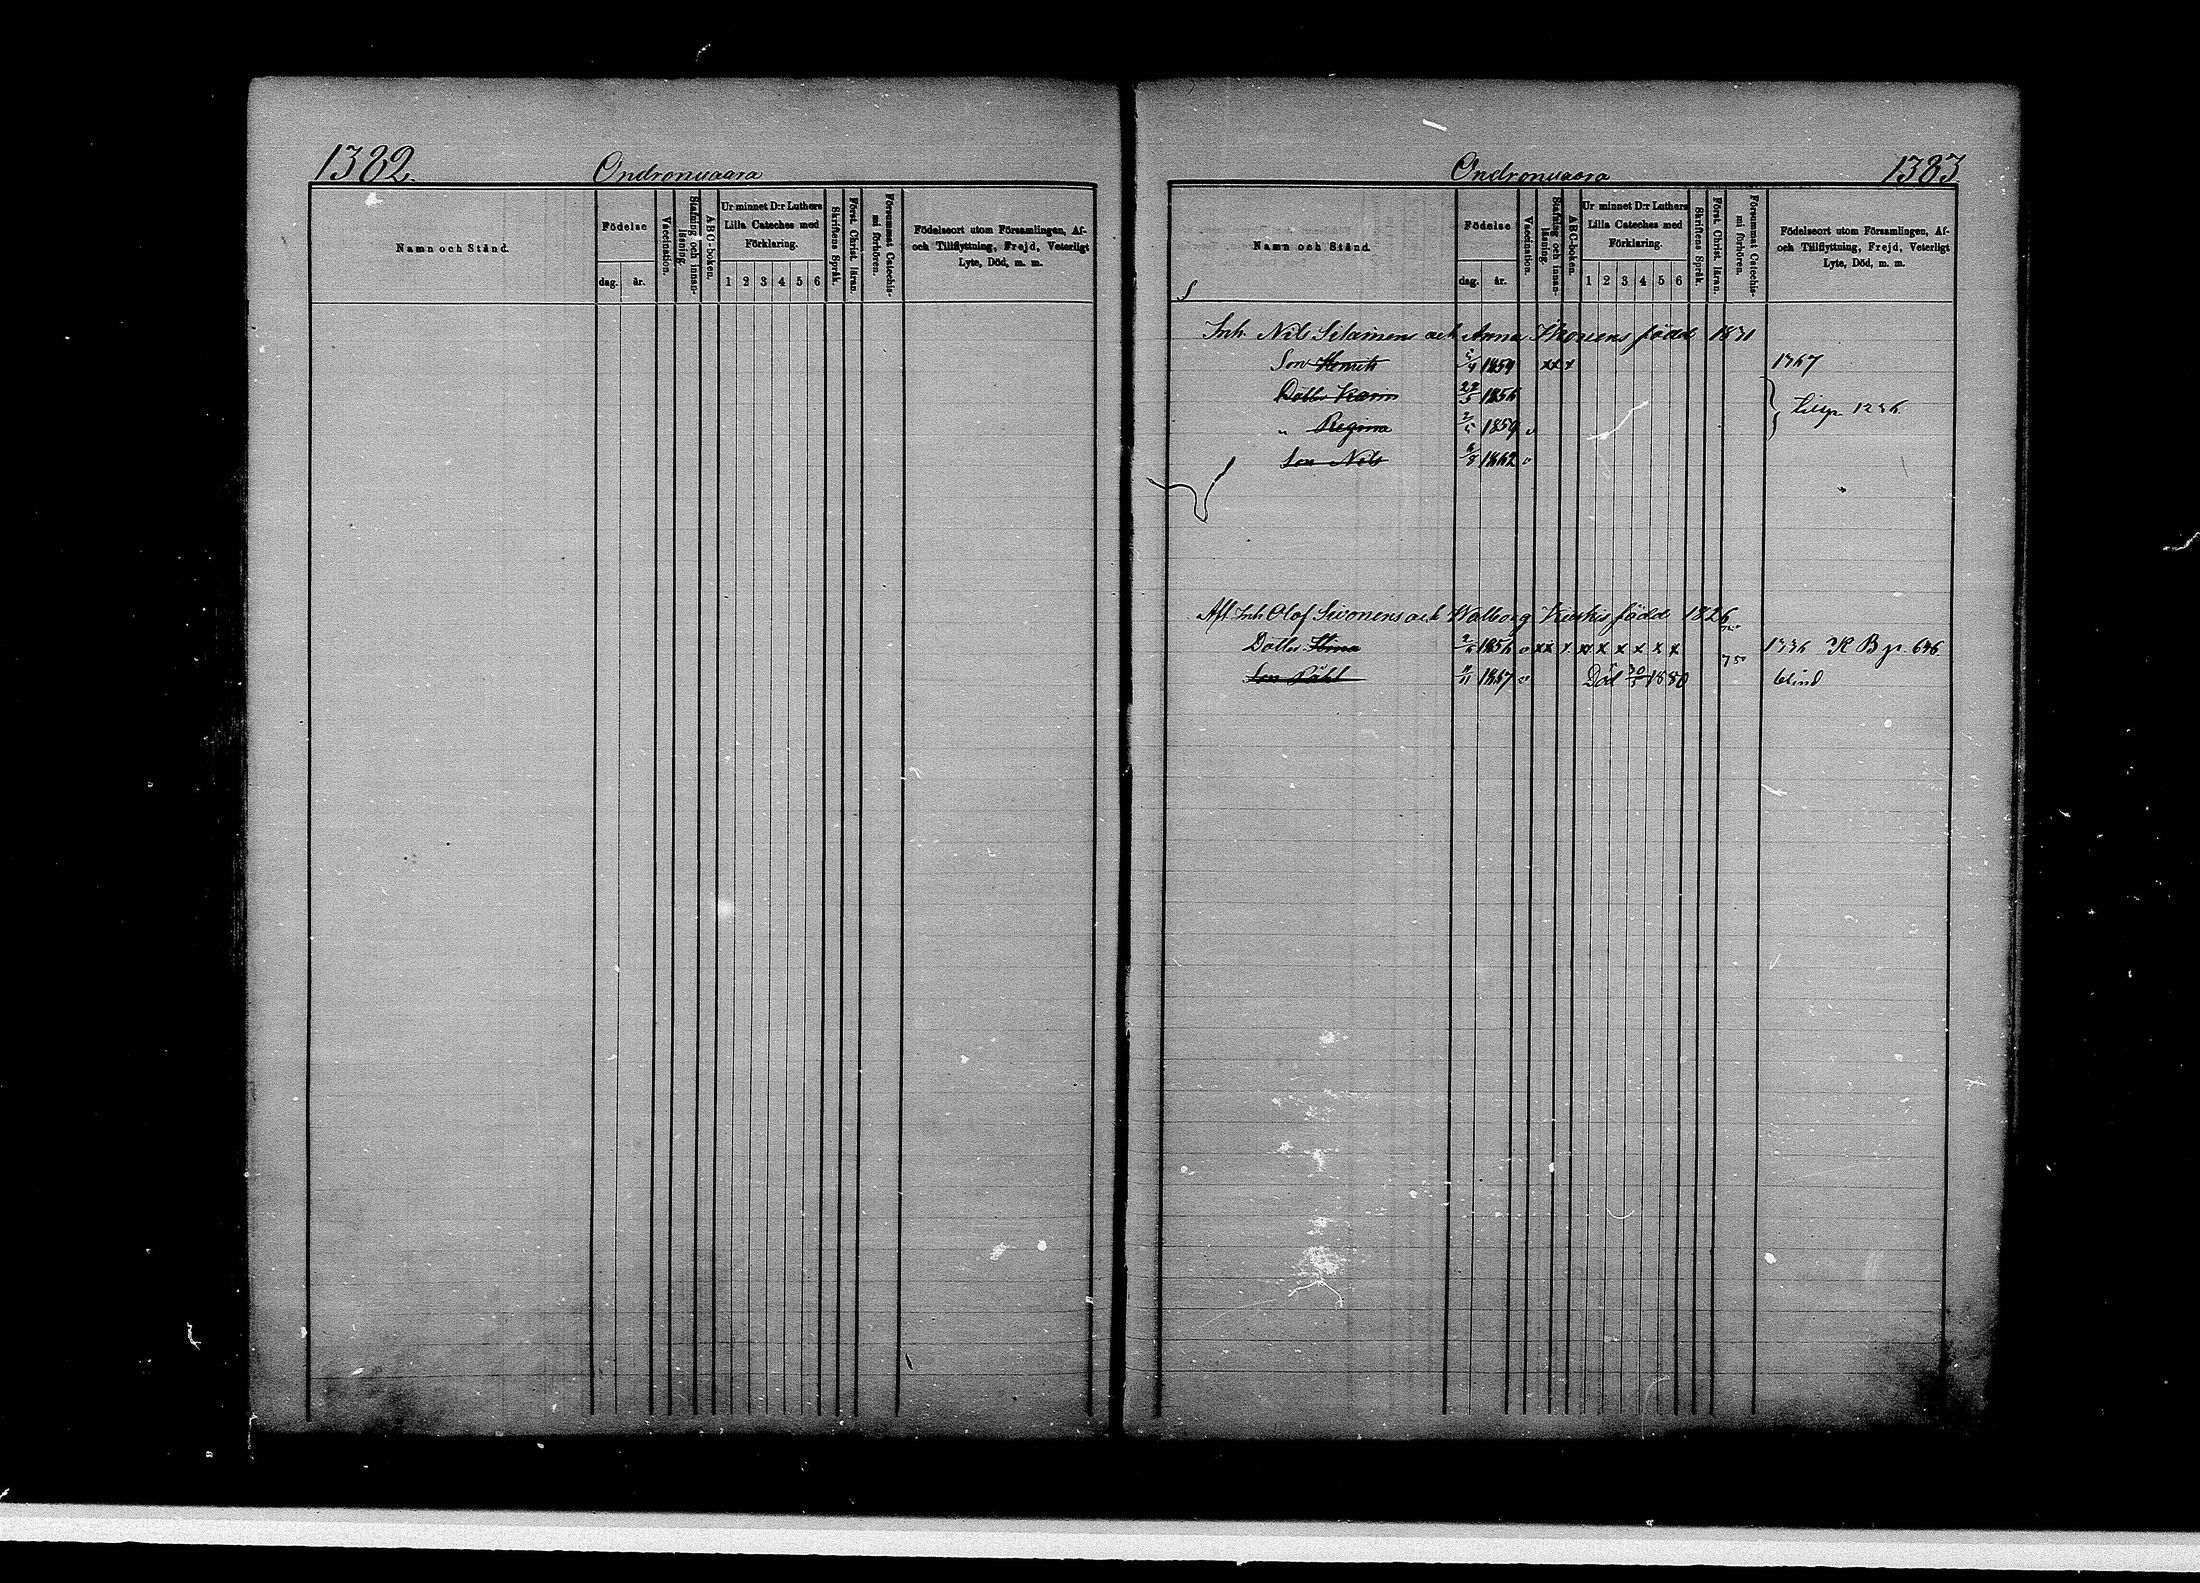 1382.
Ondronvaara
Namn och Stånd.
Födelse
dag.
år.
Vaccination.
Stafning och innan-
läsning.
ABC-boken.
Ur minnet D:r Luthers
Lilla Cateches med
Förklaring.
1 2 3 4 5 6
Skriftens Språk.
Först. Christ. läran.
Försummat Catechis-
mi förhören.
Födelseort utom Församlingen, Af-
och Tillflyttning, Frejd, Veterligt
Lyte, Död, m. m.
Ondronvaara
1383
Namn och Stånd.
Födelse
dag.
år.
Vaccination.
Stafning och innan-
läsning.
ABC-boken.
Ur minnet D:r Luthers
Lilla Cateches med
Förklaring.
1 2 3 4 5 6
Skriftens Språk.
Först. Christ. läran.
Försummat Catechis-
mi förhören.
Födelseort utom Församlingen, Af-
och Tillflyttning, Frejd, Veterligt
Lyte, Död, m. m.
Inh. Nils och Anna Ikonens född 1831
Son Henrik 1854 xx x 1367
Dotter Karin 1856
" Regina 1859
Son Nils 1862
Afl. Inh. Olof Sivonens och Walborg född 1826
Dotter Stina xx x xx x x x x x 1336 K B p. 636
Son Påhl 1857 Död 1880 blind